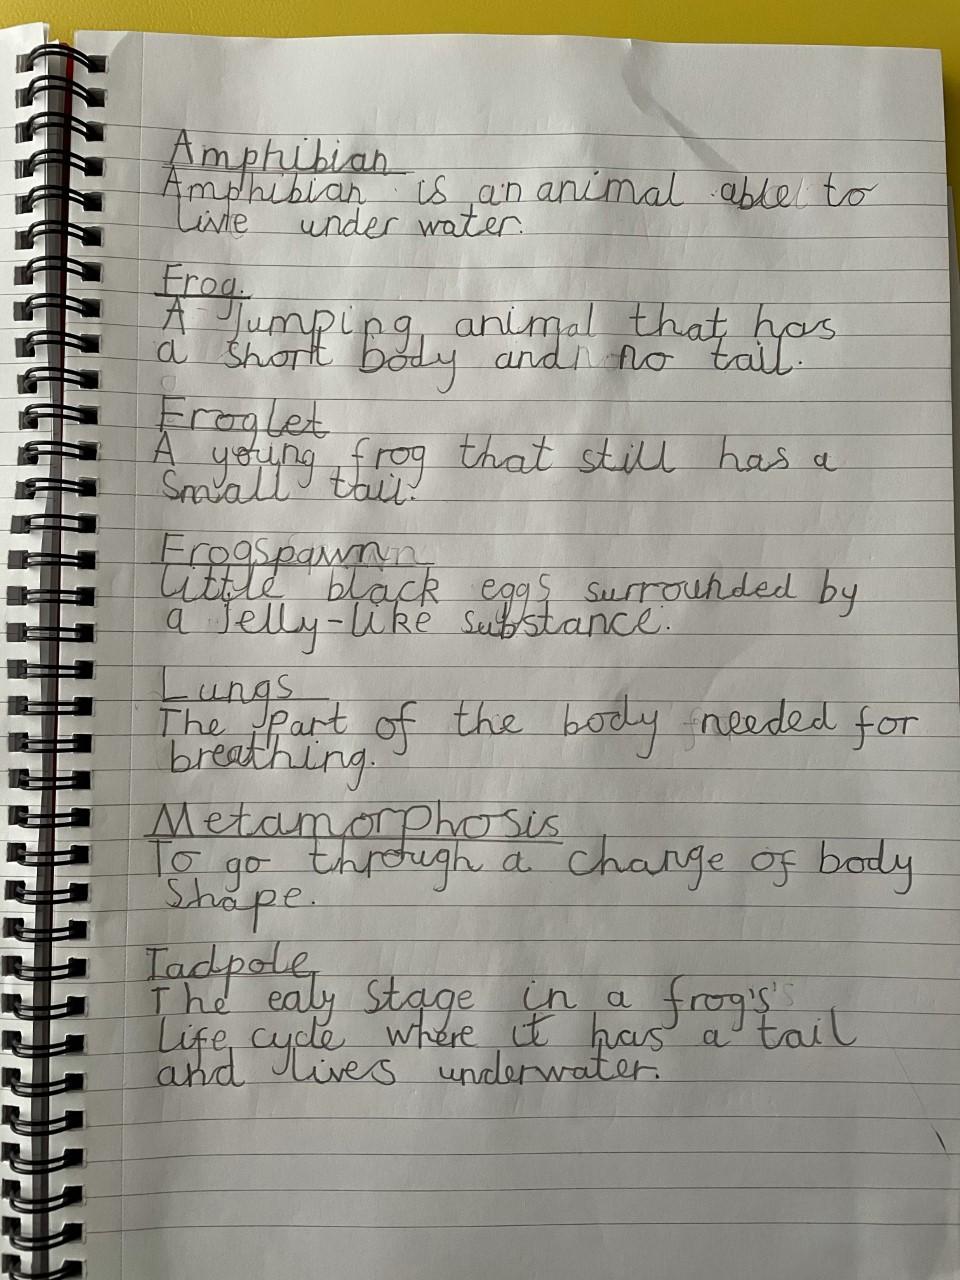 Amphibian
Amphibian is an animal able to
live under water.
Frog.
A Jumping animal that has
a short body and no tail.
Froglet
A young frog that still has a
small tail.
Frogspawn
Little black eggs surrounded by
a Jelly-like substance.
Lungs
The part of the body needed for
breathing.
Metamorphosis
To go through a change of body
shape.
Tadpole
The ealy stage in a frog's
life cycle where it has a tail
and lives underwater.